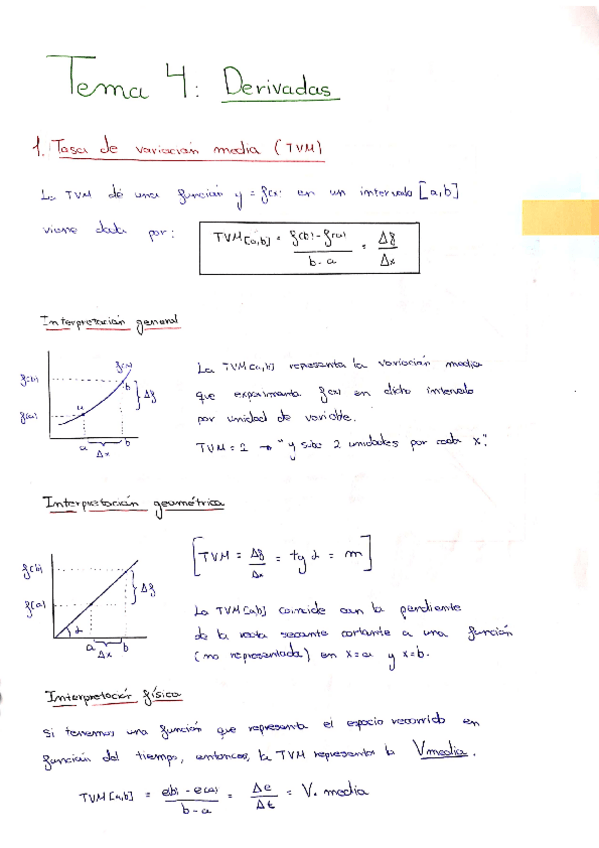 Tema 4: Derivadas
1. Tasa de variación media (TVM)
La TVM de una función y = f(x) en un intervalo [a,b]
viene dada por: TVM[a,b] = f(b) - f(a) / b - a = Δf / Δx
Interpretación general
f(b)
f(a)
f(x)
a
b
Δf
a b
Δx
La TVM[a,b] representa la variación media
que experimenta f(x) en dicho intervalo
por unidad de variable.
TVM = 2 → "y sube 2 unidades por cada x".
Interpretación geométrica
f(b)
f(a)
Δf
α
a b
Δx
[TVM = Δf / Δx = tg α = m]
La TVM[a,b] coincide con la pendiente
de la recta secante cortante a una función
(no representada) en x=a y x=b.
Interpretación física
Si tenemos una función que representa el espacio recorrido en
función del tiempo, entonces, la TVM representa la Vmedia.
TVM[a,b] = e(b) - e(a) / b - a = Δe / Δt = V. media